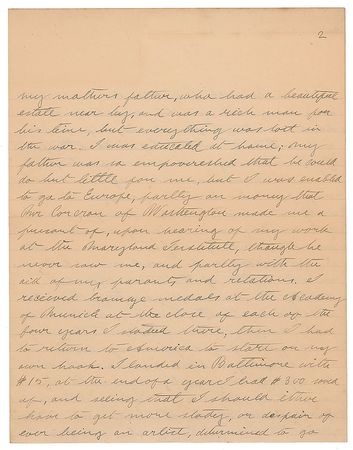 2
my mothers father, who had a beautiful
estate near by, and was a rich man for
his time, but everything was lost in
the war. I was educated at home; my
father was so empoverished that he could
do but little for me, but I was enabled
to go to Europe, partly on money that
Mr Corcran of Washington made me a
present of, upon hearing of my work
at the Maryland Institute, though he
never saw me, and partly with the
aid of my parents and relations. I
received bronze medals at the Academy
of Munich at the close of each of the
four years I studied there, then I had
to return to America to start on my
own hook. I landed in Baltimore with
$15, at the end of a year I had $300 saved
up, and seeing that I should either
have to get more study, or despair of
ever being an artist, determined to go